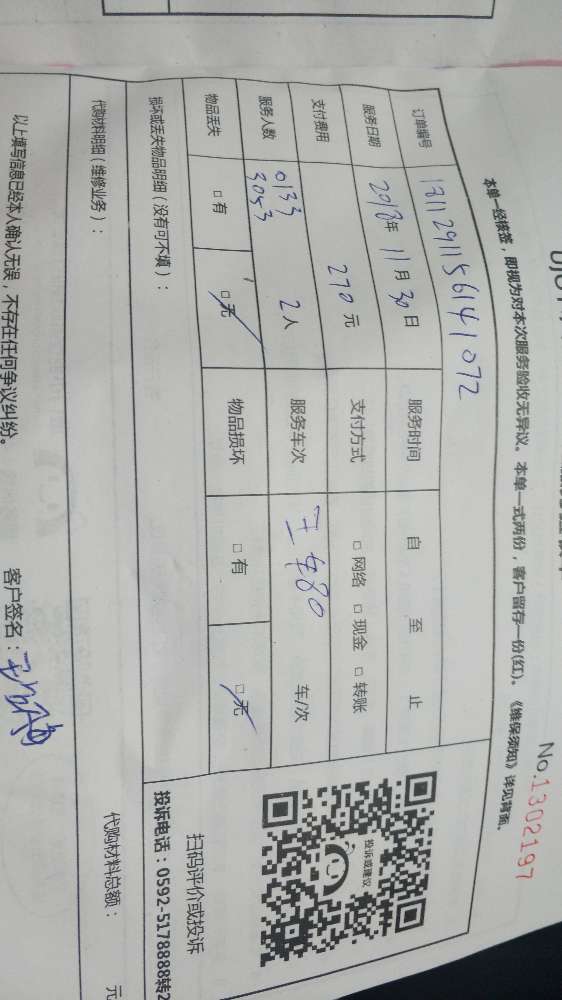 No.1302197
本单一经核签，即视为对本次服务验收无异议。本单一式两份，客户留存一份(红)。《维保须知》详见背面。
订单编号 181129115614 1072
服务日期 2018年 11月 30日 服务时间 自 至 止
支付费用 270元 支付方式 □ 网络 □ 现金 □ 转账
服务人数 0133 3053 2人 服务车次 480 车/次
物品丢失 □ 有 □ 无 物品损坏 □ 有 □ 无
损坏或丢失物品明细（没有可不填）：
投诉或建议
扫码评价或投诉
投诉电话：0592-5178888转2
代购材料明细（维修业务）：
代购材料总额： 元
以上填写信息已经本人确认无误，不存在任何争议纠纷。 客户签名：